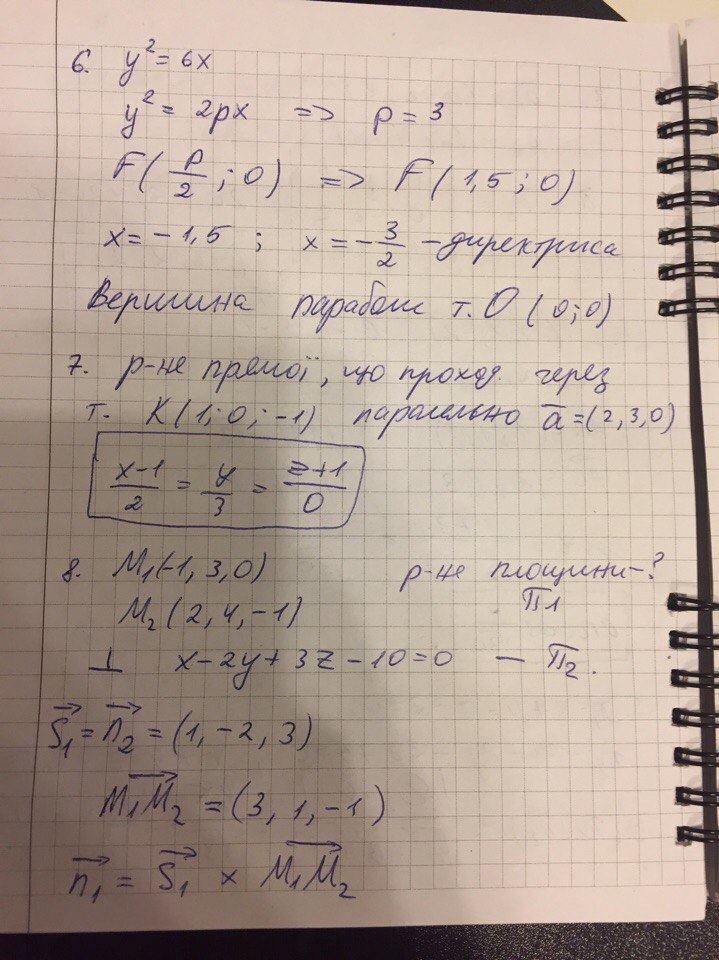 6. y² = 6x
y² = 2px => p = 3
F(p/2; 0) => F(1,5; 0)
x = -1,5 ; x = -3/2 - директриса
Вершина параболи т. O (0;0)
7. р-не прямої, що проход. через
т. K(1; 0; -1) паралельно a̅ = (2,3,0)
(x-1)/2 = y/3 = (z+1)/0
8. M₁(-1, 3, 0) р-не площини-?
M₂(2, 4, -1) П1
⊥ x - 2y + 3z - 10 = 0 — П₂.
S₁⃗ = n₂⃗ = (1, -2, 3)
M₁M₂⃗ = (3, 1, -1)
n₁⃗ = S₁⃗ × M₁M₂⃗